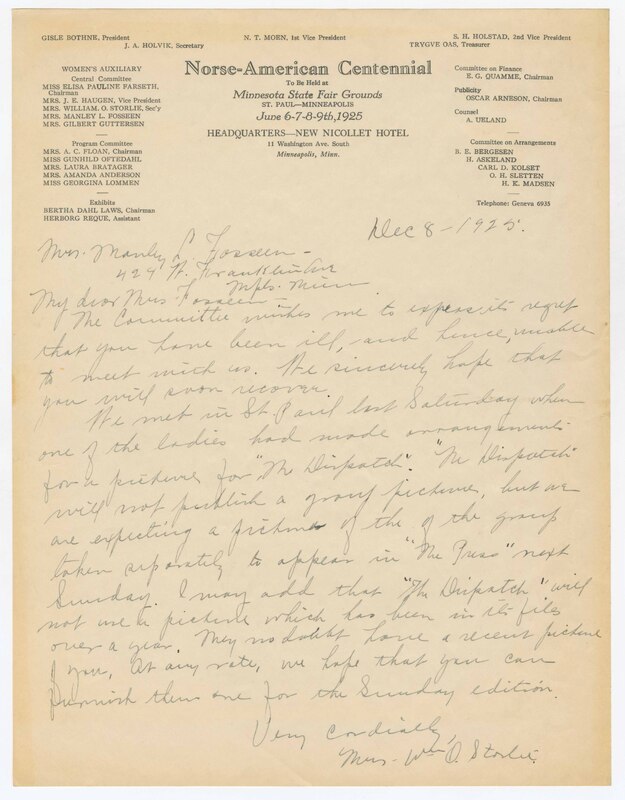 GISLE BOTHNE, President
J. A. HOLVIK, Secretary
N. T. MOEN, 1st Vice President
S. H. HOLSTAD, 2nd Vice President
TRYGVE OAS, Treasurer
WOMEN'S AUXILIARY
Central Committee
MISS ELISA PAULINE FARSETH,
Chairman
MRS. J. E. HAUGEN, Vice President
MRS. WILLIAM. O. STORLIE, Sec'y
MRS. MANLEY L. FOSSEEN
MRS. GILBERT GUTTERSEN
Program Committee
MRS. A. C. FLOAN, Chairman
MISS GUNHILD OFTEDAHL
MRS. LAURA BRATAGER
MRS. AMANDA ANDERSON
MISS GEORGINA LOMMEN
Exhibits
BERTHA DAHL LAWS, Chairman
HERBORG REQUE, Assistant
Norse-American Centennial
To Be Held at
Minnesota State Fair Grounds
ST. PAUL—MINNEAPOLIS
June 6-7-8-9th, 1925
HEADQUARTERS—NEW NICOLLET HOTEL
11 Washington Ave. South
Minneapolis, Minn.
Committee on Finance
E. G. QUAMME, Chairman
Publicity
OSCAR ARNESON, Chairman
Counsel
A. UELAND
Committee on Arrangements
B. E. BERGESEN
H. ASKELAND
CARL D. KOLSET
O. H. SLETTEN
H. K. MADSEN
Telephone: Geneva 6935
Dec 8 - 1925.
Mrs. Manley L. Fosseen -
424 W. Franklin Ave
Mpls. Minn
My dear Mrs. Fosseen -
The Committee wishes me to express its regret
that you have been ill, and hence, unable
to meet with us. We sincerely hope that
you will soon recover.
We met in St. Paul last Saturday when
one of the ladies had made arrangements
for a picture for "The Dispatch". "The Dispatch"
will not publish a group picture, but we
are expecting a picture of the of the group
taken separately to appear in "The Press" next
Sunday. I may add that "The Dispatch" will
not use a picture which has been in its files
over a year. They no doubt have a recent picture
of you. At any rate, we hope that you can
furnish them one for the Sunday edition.
Very cordially,
Mrs. Wm O. Storlie.